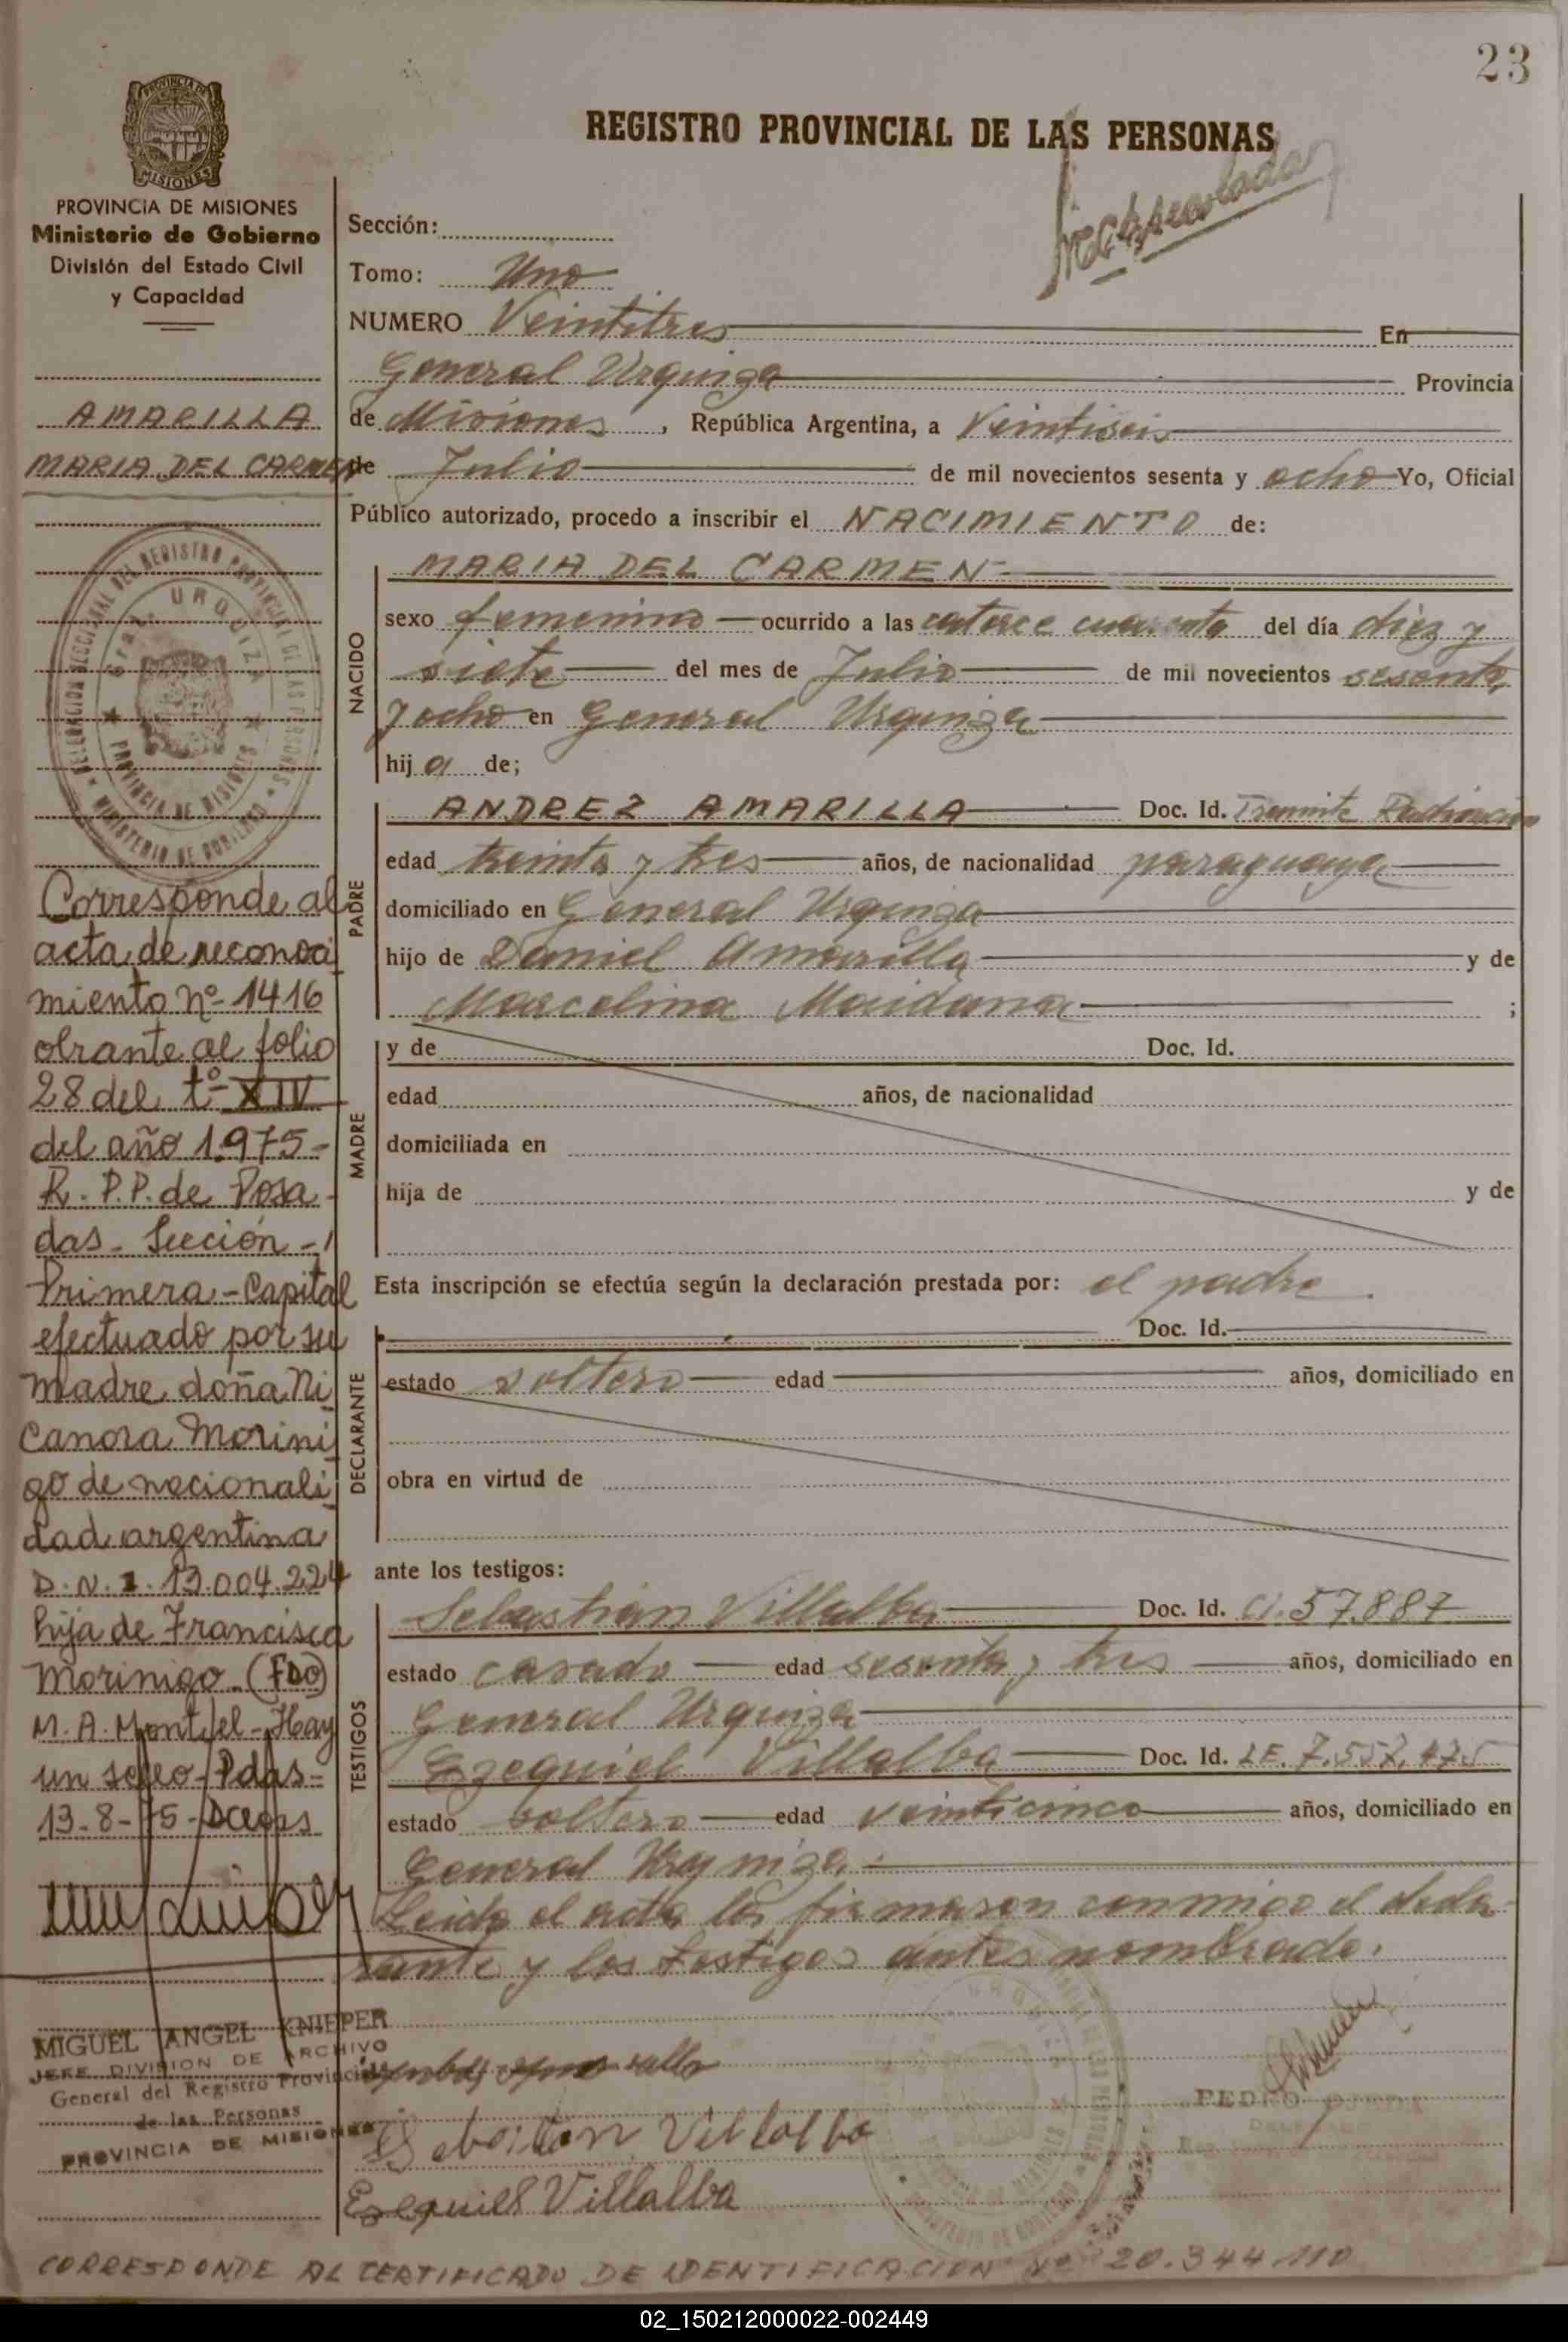 23
REGISTRO PROVINCIAL DE LAS PERSONAS
PROVINCIA DE MISIONES
Ministerio de Gobierno
División del Estado Civil
y Capacidad
AMARILLA
MARIA DEL CARMEN
Corresponde al
acta de reconoci
miento nº 1416
obrante al folio
28 del tº XIV
del año 1.975-
R. P.P. de Posa-
das - Sección -
Primera - Capital
efectuado por su
madre doña Ni
canora Morini
go de nacionali
dad argentina
D.N.I. 13.004.224
hija de Francisca
Morinigo. (FDO)
M. A. Montiel - Hay
un sello - Pdas -
13-8-75-
MIGUEL ANGEL KNIEPER
JEFE DIVISION DE ARCHIVO
General del Registro Provincial
de las Personas
PROVINCIA DE MISIONES
Sección:
Tomo: Uno
NUMERO Veintitres En
General Urquiza Provincia
de Misiones, República Argentina, a Veintiseis
de Julio de mil novecientos sesenta y ocho Yo, Oficial
Público autorizado, procedo a inscribir el NACIMIENTO de:
NACIDO
MARIA DEL CARMEN
sexo femenino ocurrido a las catorce cuarenta del día diez y
siete del mes de Julio de mil novecientos sesenta
y ocho en General Urquiza
hija de;
PADRE
ANDREZ AMARILLA Doc. Id. Tramite Radicación
edad treinta y tres años, de nacionalidad paraguaya
domiciliado en General Urquiza
hijo de Daniel Amarilla y de
Marcelina Maidana ;
MADRE
y de Doc. Id.
edad años, de nacionalidad
domiciliada en
hija de y de
Esta inscripción se efectúa según la declaración prestada por: el padre.
DECLARANTE
Doc. Id.
estado soltero edad años, domiciliado en
obra en virtud de
ante los testigos:
TESTIGOS
Sebastián Villalba Doc. Id. CI. 57.887
estado casado edad sesenta y tres años, domiciliado en
General Urquiza
Ezequiel Villalba Doc. Id. LE. 7.557.475
estado soltero edad veinticinco años, domiciliado en
General Urquiza.
Leida el acta la firmaron conmigo el decla-
rante y los testigos antes nombrado.
Sebastian Villalba
Ezequiel Villalba
PEDRO OJEDA
CORRESPONDE AL CERTIFICADO DE IDENTIFICACION Nº 20.344.110
02_150212000022-002449